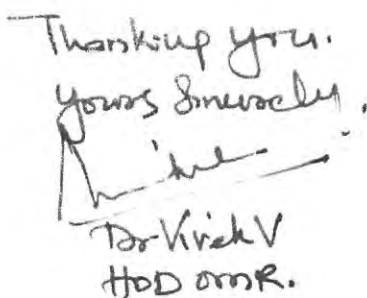 Thanking you.
Yours Sincerely,
Dr Vivek V
HOD OMR.